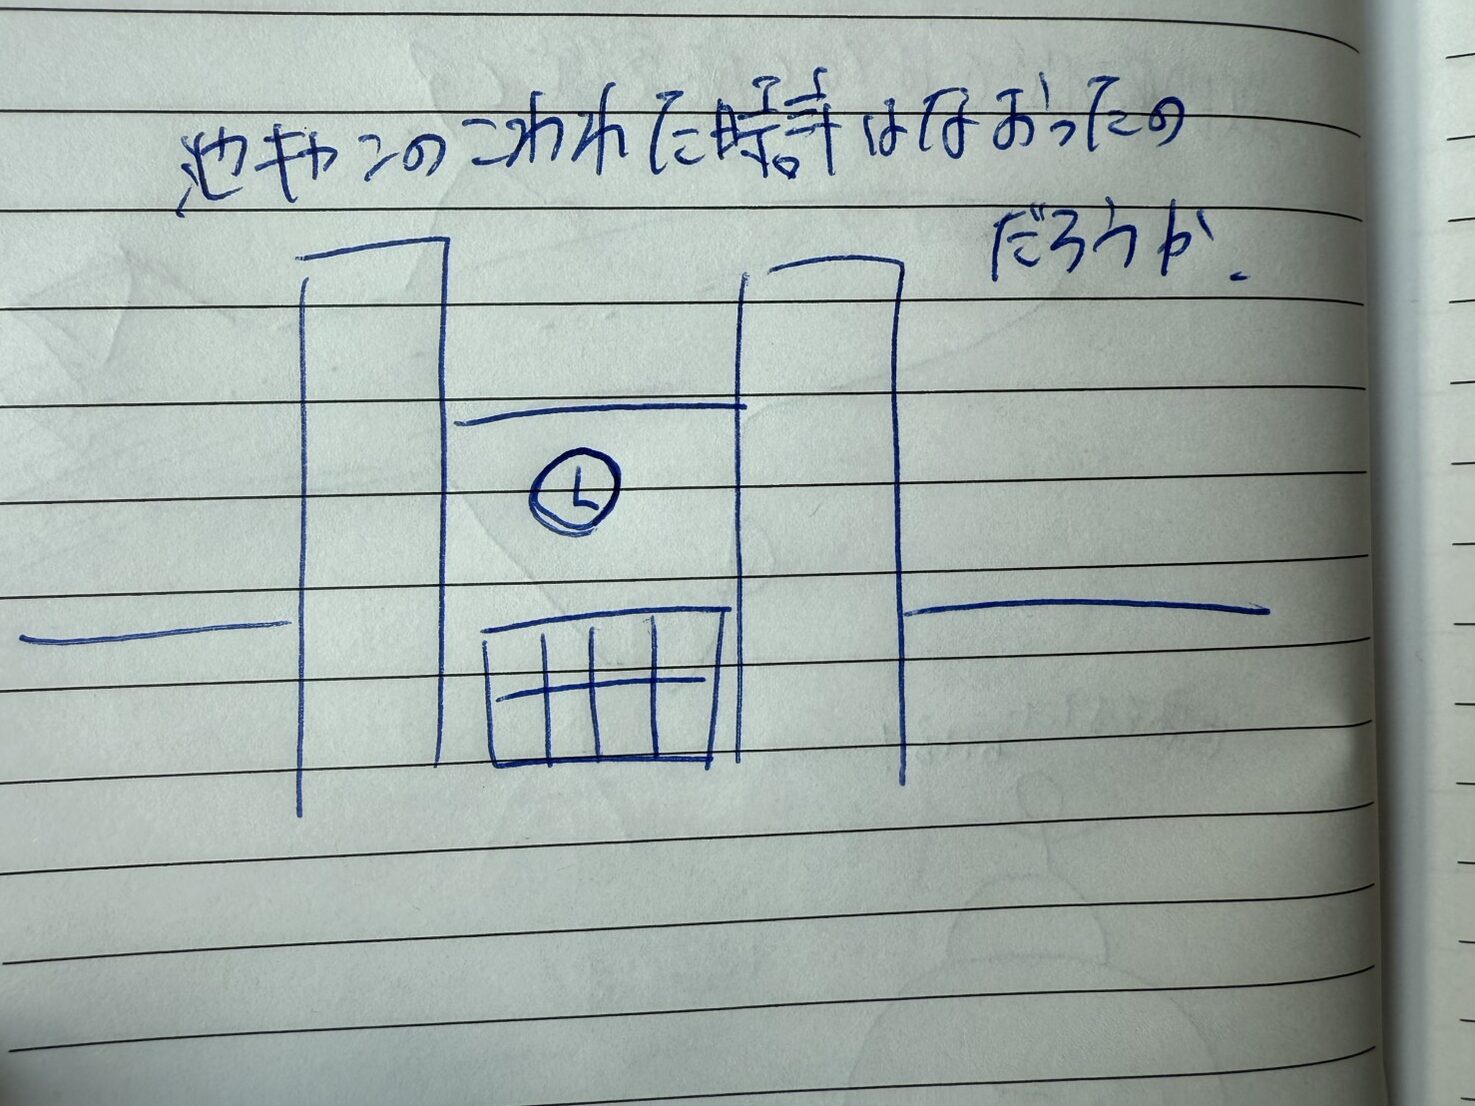 池キャンのこわれた時計はなおったの
だろうか.